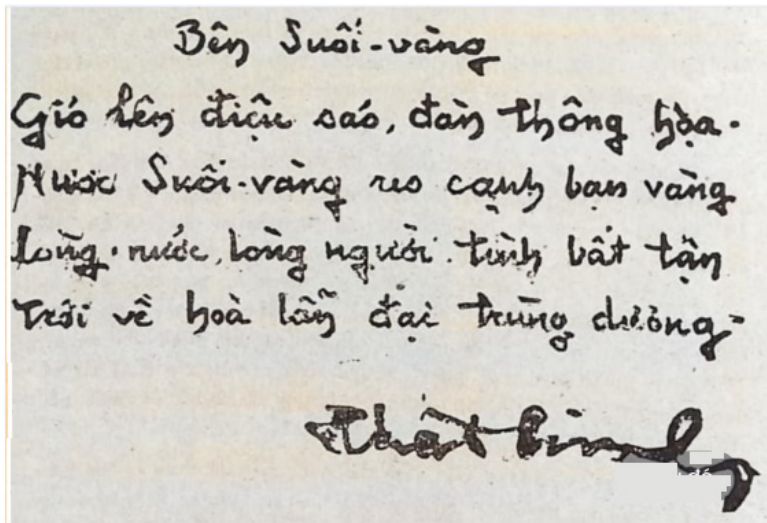 Bên Suối-vàng
Gió lên điệu sáo, đàn thông họa.
Nước Suối-vàng reo cạnh bạn vàng
Lòng nước, lòng người tình bất tận
Trôi về hoà lẫn đại trùng dương.
Nhất Linh